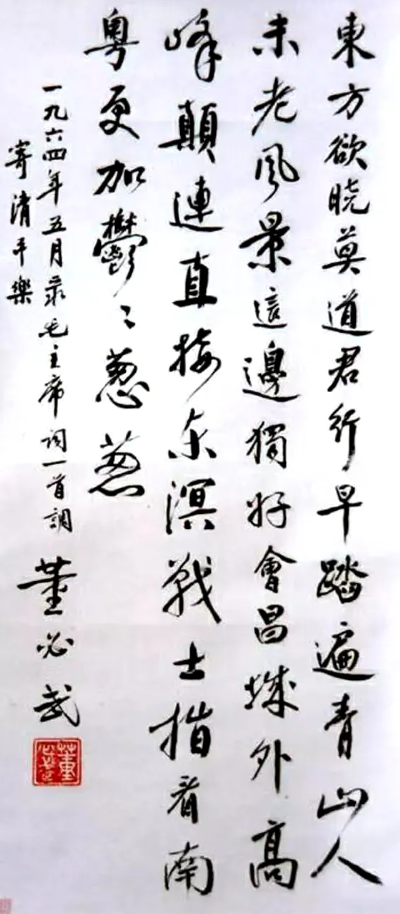 東方欲晓莫道君行早踏遍青山人
未老风景這邊獨好會昌城外高
峰顛連直接东溟戰士指看南
粤更加鬱〻葱葱
一九六四年五月录毛主席词一首調
寄清平樂
董必武